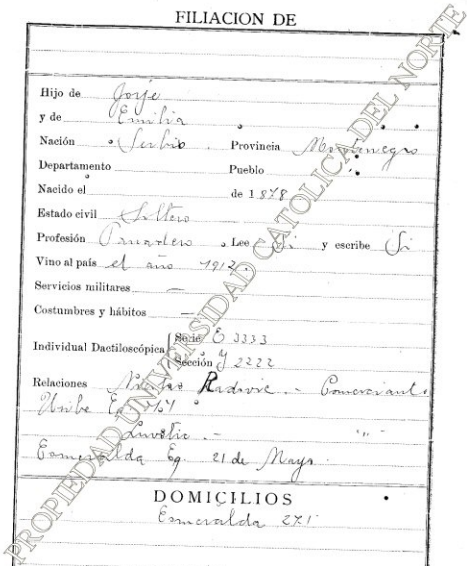 FILIACION DE
Hijo de Jorje
y de Emilia
Nación Serbio Provincia Montenegro
Departamento Pueblo "
Nacido el de 1878
Estado civil Soltero
Profesión Panadero Lee Si y escribe Si
Vino al país el año 1912.
Servicios militares —
Costumbres y hábitos —
Individual Dactiloscópica Serie E 3333
Sección J 2222
Relaciones Nicolas Radovic. - Comerciante
Uribe Eq.
.- " -
Esmeralda Eq. 21 de Mayo.
DOMICILIOS
Esmeralda 271
PROPIEDAD UNIVERSIDAD CATOLICA DEL NORTE